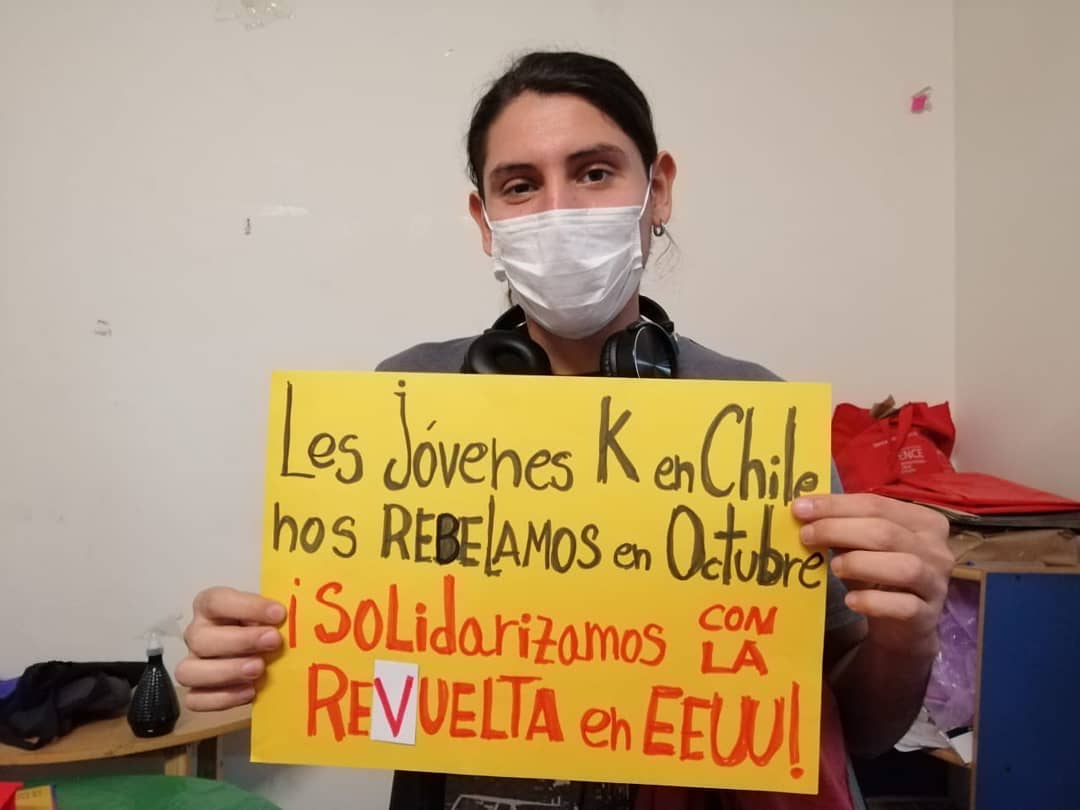 Les jóvenes K en Chile
nos REBELAMOS en Octubre
¡Solidarizamos CON LA
REVUELTA en EEUU!